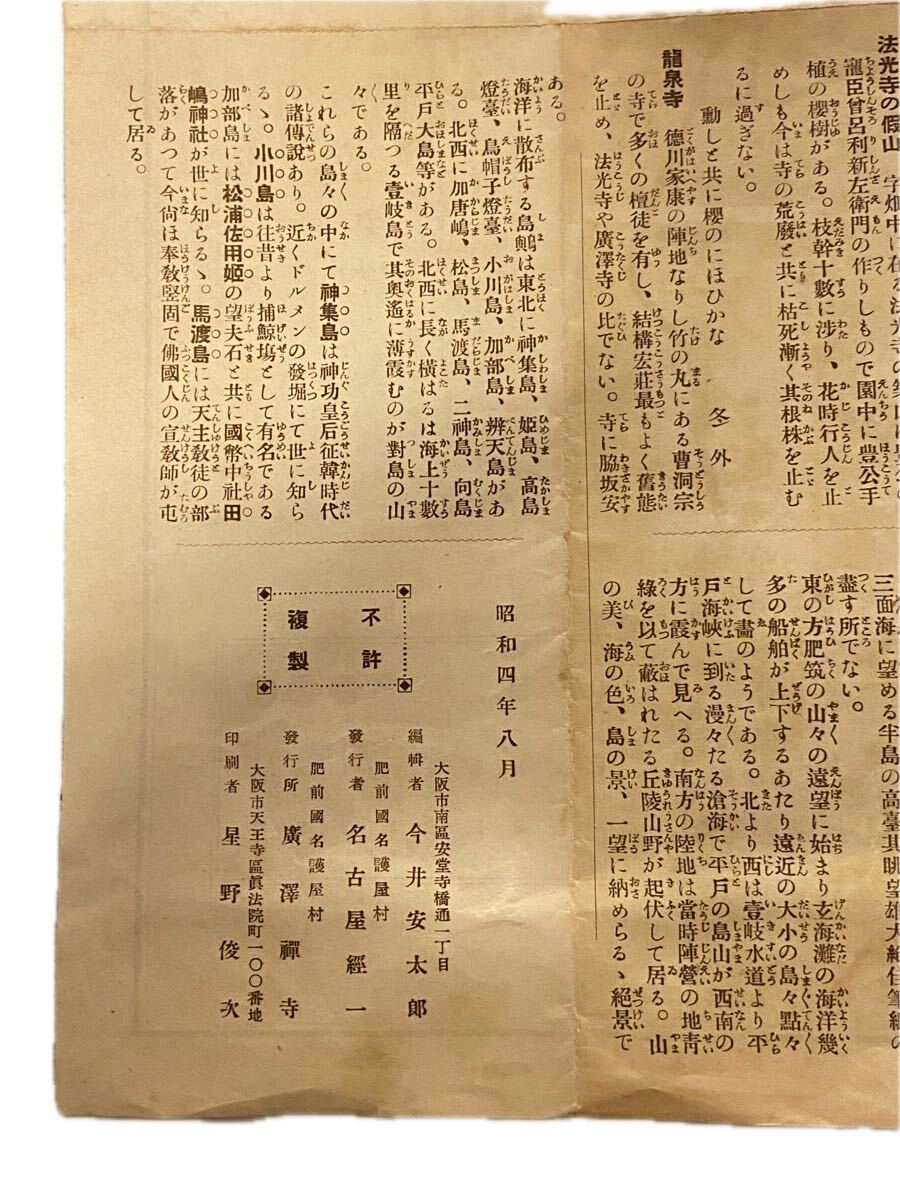 法光寺の假山
寵臣曾呂利新左衛門の作りしもので園中に豊公手
植の櫻樹がある。枝幹十數に渉り、花時行人を止
めしも今は寺の荒廢と共に枯死漸く其根株を止む
るに過ぎない。
動しと共に櫻のにほひかな 冬外
龍泉寺 德川家康の陣地なりし竹の丸にある曹洞宗
の寺で多くの檀徒を有し、結構宏莊最もよく舊態
を止め、法光寺や廣澤寺の比でない。寺に脇坂安
三面海に望める半島の高臺其眺望雄大絕佳筆紙の
盡す所でない。
東の方肥筑の山々の遠望に始まり玄海灘の海洋幾
多の船舶が上下するあたり遠近の大小の島々點々
して畵のようである。北より西は壹岐水道より平
戸海峽に到る漫々たる滄海で平戸の島山が西南の
方に霞んで見へる。南方の陸地は當時陣營の地靑
綠を以て蔽はれたる丘陵山野が起伏して居る。山
の美、海の色、島の景、一望に納めらるゝ絕景で
ある。
海洋に散布する島嶼は東北に神集島、姫島、高島
燈臺、烏帽子燈臺、小川島、加部島、辨天島があ
る。北西に加唐嶋、松島、馬渡島、二神島、向島
平戸大島等がある。北西に長く橫はるは海上十數
里を隔つる壹岐島で其奥遙に薄霞むのが對島の山
々である。
これらの島々の中にて神集島は神功皇后征韓時代
の諸傳說あり。近くドルメンの發堀にて世に知ら
るゝ。小川島は往昔より捕鯨塲として有名である
加部島には松浦佐用姬の望夫石と共に國幣中社田
嶋神社が世に知らるゝ。馬渡島には天主敎徒の部
落があつて今尙ほ奉敎堅固で佛國人の宣敎師が屯
して居る。
昭和四年八月
不許
複製
大阪市南區安堂寺橋通一丁目
編輯者 今井安太郎
肥前國名護屋村
發行者 名古屋經一
肥前國名護屋村
發行所 廣澤禪寺
大阪市天王寺區眞法院町一〇〇番地
印刷者 星野俊次